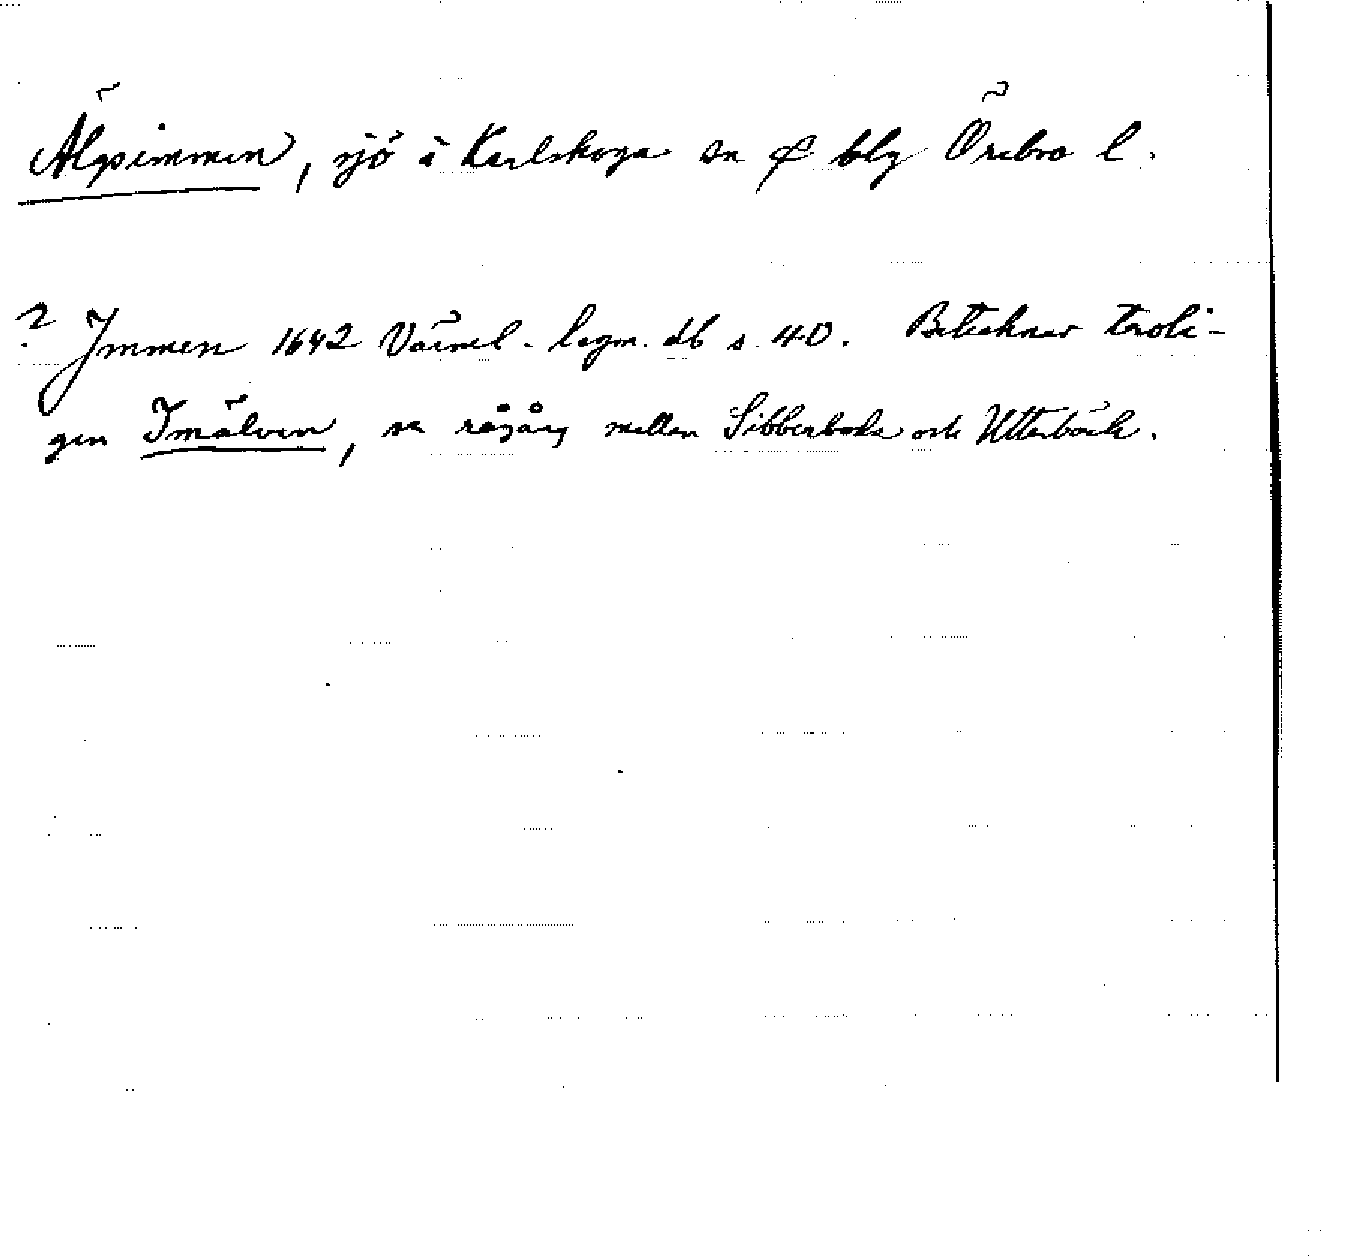 Älgsimmen, sjö i Karlskoga sn Ø blg Örebro l.
? Immen 1642 Värml. lagm. db s. 40. Betecknar troli-
gen Imälven, se rågång mellan Sibberboda och Utterbäck.